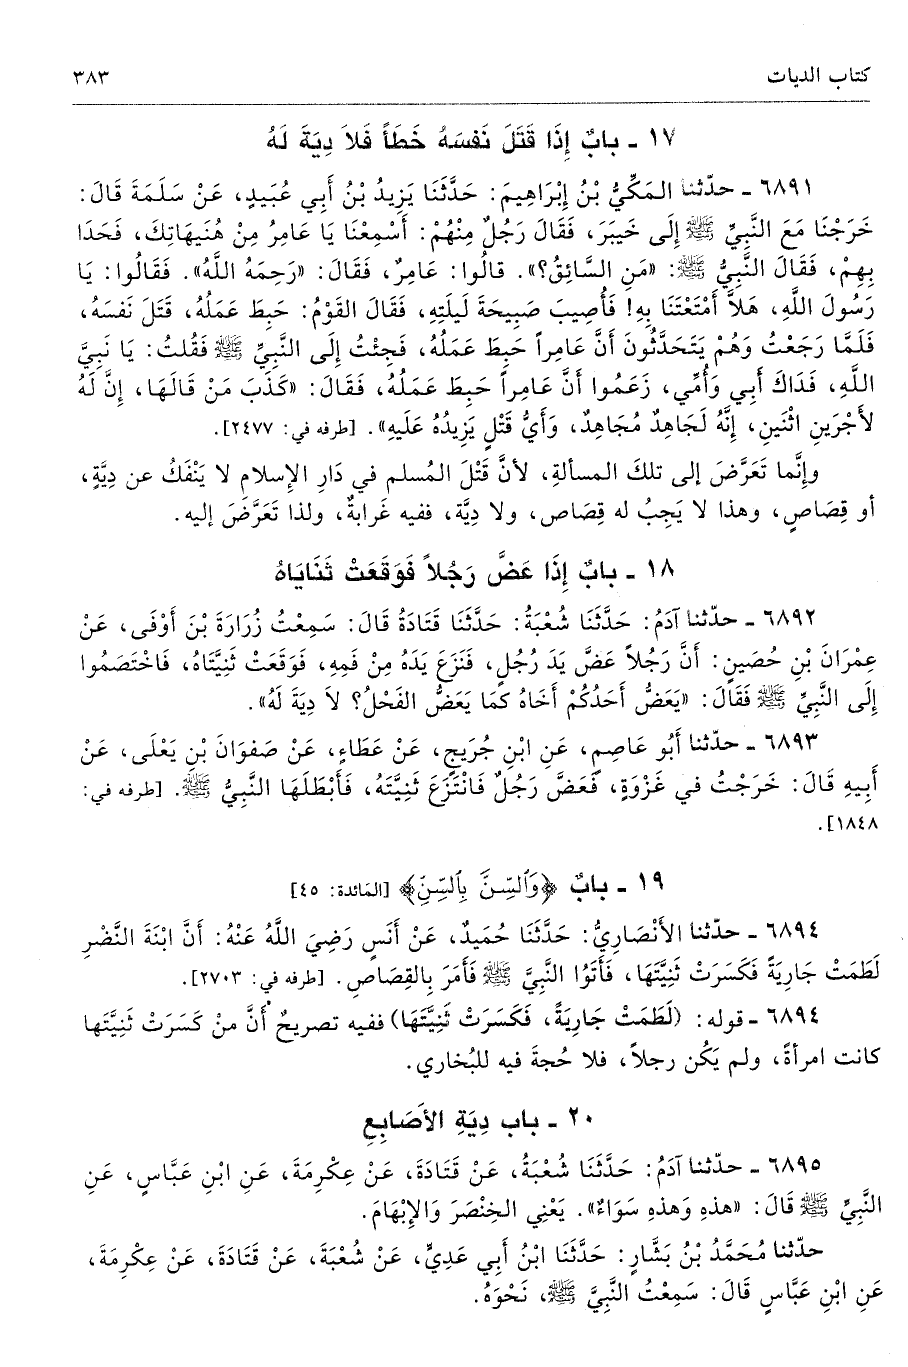 كتاب الديات ٣٨٣
١٧ ـ بابٌ إِذَا قَتَلَ نَفْسَهُ خَطَأً فَلاَ دِيَةَ لَهُ
٦٨٩١ ـ حدّثنا المَكِّيُّ بْنُ إِبْرَاهِيمَ: حَدَّثَنَا يَزِيدُ بْنُ أَبِي عُبَيدٍ، عَنْ سَلَمَةَ قَالَ:
خَرَجْنَا مَعَ النَّبِيِّ ﷺ إِلَى خَيبَرَ، فَقَالَ رَجُلٌ مِنْهُمْ: أَسْمِعْنَا يَا عَامِرُ مِنْ هُنَيهَاتِكَ، فَحَدَا
بِهِمْ، فَقَالَ النَّبِيُّ ﷺ: «مَنِ السَّائِقُ؟». قالُوا: عَامِرٌ، فَقَالَ: «رَحِمَهُ اللَّهُ». فَقَالُوا: يَا
رَسُولَ اللَّهِ، هَلاَّ أَمْتَعْتَنَا بِهِ! فَأُصِيبَ صَبِيحَةَ لَيلَتِهِ، فَقَالَ القَوْمُ: حَبِطَ عَمَلُهُ، قَتَلَ نَفْسَهُ،
فَلَمَّا رَجَعْتُ وَهُمْ يَتَحَدَّثُونَ أَنَّ عَامِراً حَبِطَ عَمَلُهُ، فَجِئْتُ إِلَى النَّبِيِّ ﷺ فَقُلتُ: يَا نَبِيَّ
اللَّهِ، فَدَاكَ أَبِي وَأُمِّي، زَعَمُوا أَنَّ عَامِراً حَبِطَ عَمَلُهُ، فَقَالَ: «كَذَبَ مَنْ قَالَهَا، إِنَّ لَهُ
لأَجْرَينِ اثْنَينِ، إِنَّهُ لَجَاهِدٌ مُجَاهِدٌ، وَأَيُّ قَتْلٍ يَزِيدُهُ عَلَيهِ». [طرفه في: ٢٤٧٧].
وإنَّما تَعَرَّضَ إلى تلكَ المسألةِ، لأنَّ قَتْلَ المُسلم في دَارِ الإِسلام لا يَنْفَكُ عن دِيَّةٍ،
أو قِصَاصٍ، وهذا لا يَجِبُ له قِصَاص، ولا دِيَّة، ففيه غَرابةٌ، ولذا تَعَرَّضَ إليه.
١٨ ـ بابٌ إِذَا عَضَّ رَجُلاً فَوَقَعَتْ ثَنَايَاهُ
٦٨٩٢ ـ حدّثنا آدَمُ: حَدَّثَنَا شُعْبَةُ: حَدَّثَنَا قَتَادَةُ قَالَ: سَمِعْتُ زُرَارَةَ بْنَ أَوْفَى، عَنْ
عِمْرَانَ بْنِ حُصَينٍ: أَنَّ رَجُلاً عَضَّ يَدَ رَجُلٍ، فَنَزَعَ يَدَهُ مِنْ فَمِهِ، فَوَقَعَتْ ثَنِيَّتَاهُ، فَاخْتَصَمُوا
إِلَى النَّبِيِّ ﷺ فَقَالَ: «يَعَضُّ أَحَدُكُمْ أَخَاهُ كَمَا يَعَضُّ الفَحْلُ؟ لاَ دِيَةَ لَهُ».
٦٨٩٣ ـ حدّثنا أَبُو عَاصِمٍ، عَنِ ابْنِ جُرَيجٍ، عَنْ عَطَاءٍ، عَنْ صَفوَانَ بْنِ يَعْلَى، عَنْ
أَبِيهِ قَالَ: خَرَجْتُ فِي غَزْوَةٍ، فَعَضَّ رَجُلٌ فَانْتَزَعَ ثَنِيَّتَهُ، فَأَبْطَلَهَا النَّبِيُّ ﷺ. [طرفه في:
١٨٤٨].
١٩ ـ بابٌ ﴿وَٱلسِّنَّ بِٱلسِّنِّ﴾ [المَائدة: ٤٥]
٦٨٩٤ ـ حدّثنا الأَنْصَارِيُّ: حَدَّثَنَا حُمَيدٌ، عَنْ أَنَسٍ رَضِيَ اللَّهُ عَنْهُ: أَنَّ ابْنَةَ النَّضْرِ
لَطَمَتْ جَارِيَةً فَكَسَرَتْ ثَنِيَّتَهَا، فَأَتَوُا النَّبِيَّ ﷺ فَأَمَرَ بِالقِصَاصِ. [طرفه في: ٢٧٠٣].
٦٨٩٤ ـ قوله: (لَطَمَتْ جَارِيَةً، فَكَسَرَتْ ثَنِيَّتَهَا) ففيه تصريحٌ أَنَّ منْ كَسَرَتْ ثَنِيَّتها
كانت امرأةً، ولم يَكُن رجلاً، فلا حُجةَ فيه للبُخاري.
٢٠ ـ باب دِيَةِ الأَصَابِعِ
٦٨٩٥ ـ حدّثنا آدَمُ: حَدَّثَنَا شُعْبَةُ، عَنْ قَتَادَةَ، عَنْ عِكْرِمَةَ، عَنِ ابْنِ عَبَّاسٍ، عَنِ
النَّبِيِّ ﷺ قَالَ: «هذهِ وَهذهِ سَوَاءٌ». يَعْنِي الخِنْصَرَ وَالإِبْهَامَ.
حدّثنا مُحَمَّدُ بْنُ بَشَّارٍ: حَدَّثَنَا ابْنُ أَبِي عَدِيٍّ، عَنْ شُعْبَةَ، عَنْ قَتَادَةَ، عَنْ عِكْرِمَةَ،
عَنِ ابْنِ عَبَّاسٍ قَالَ: سَمِعْتُ النَّبِيَّ ﷺ، نَحْوَهُ.